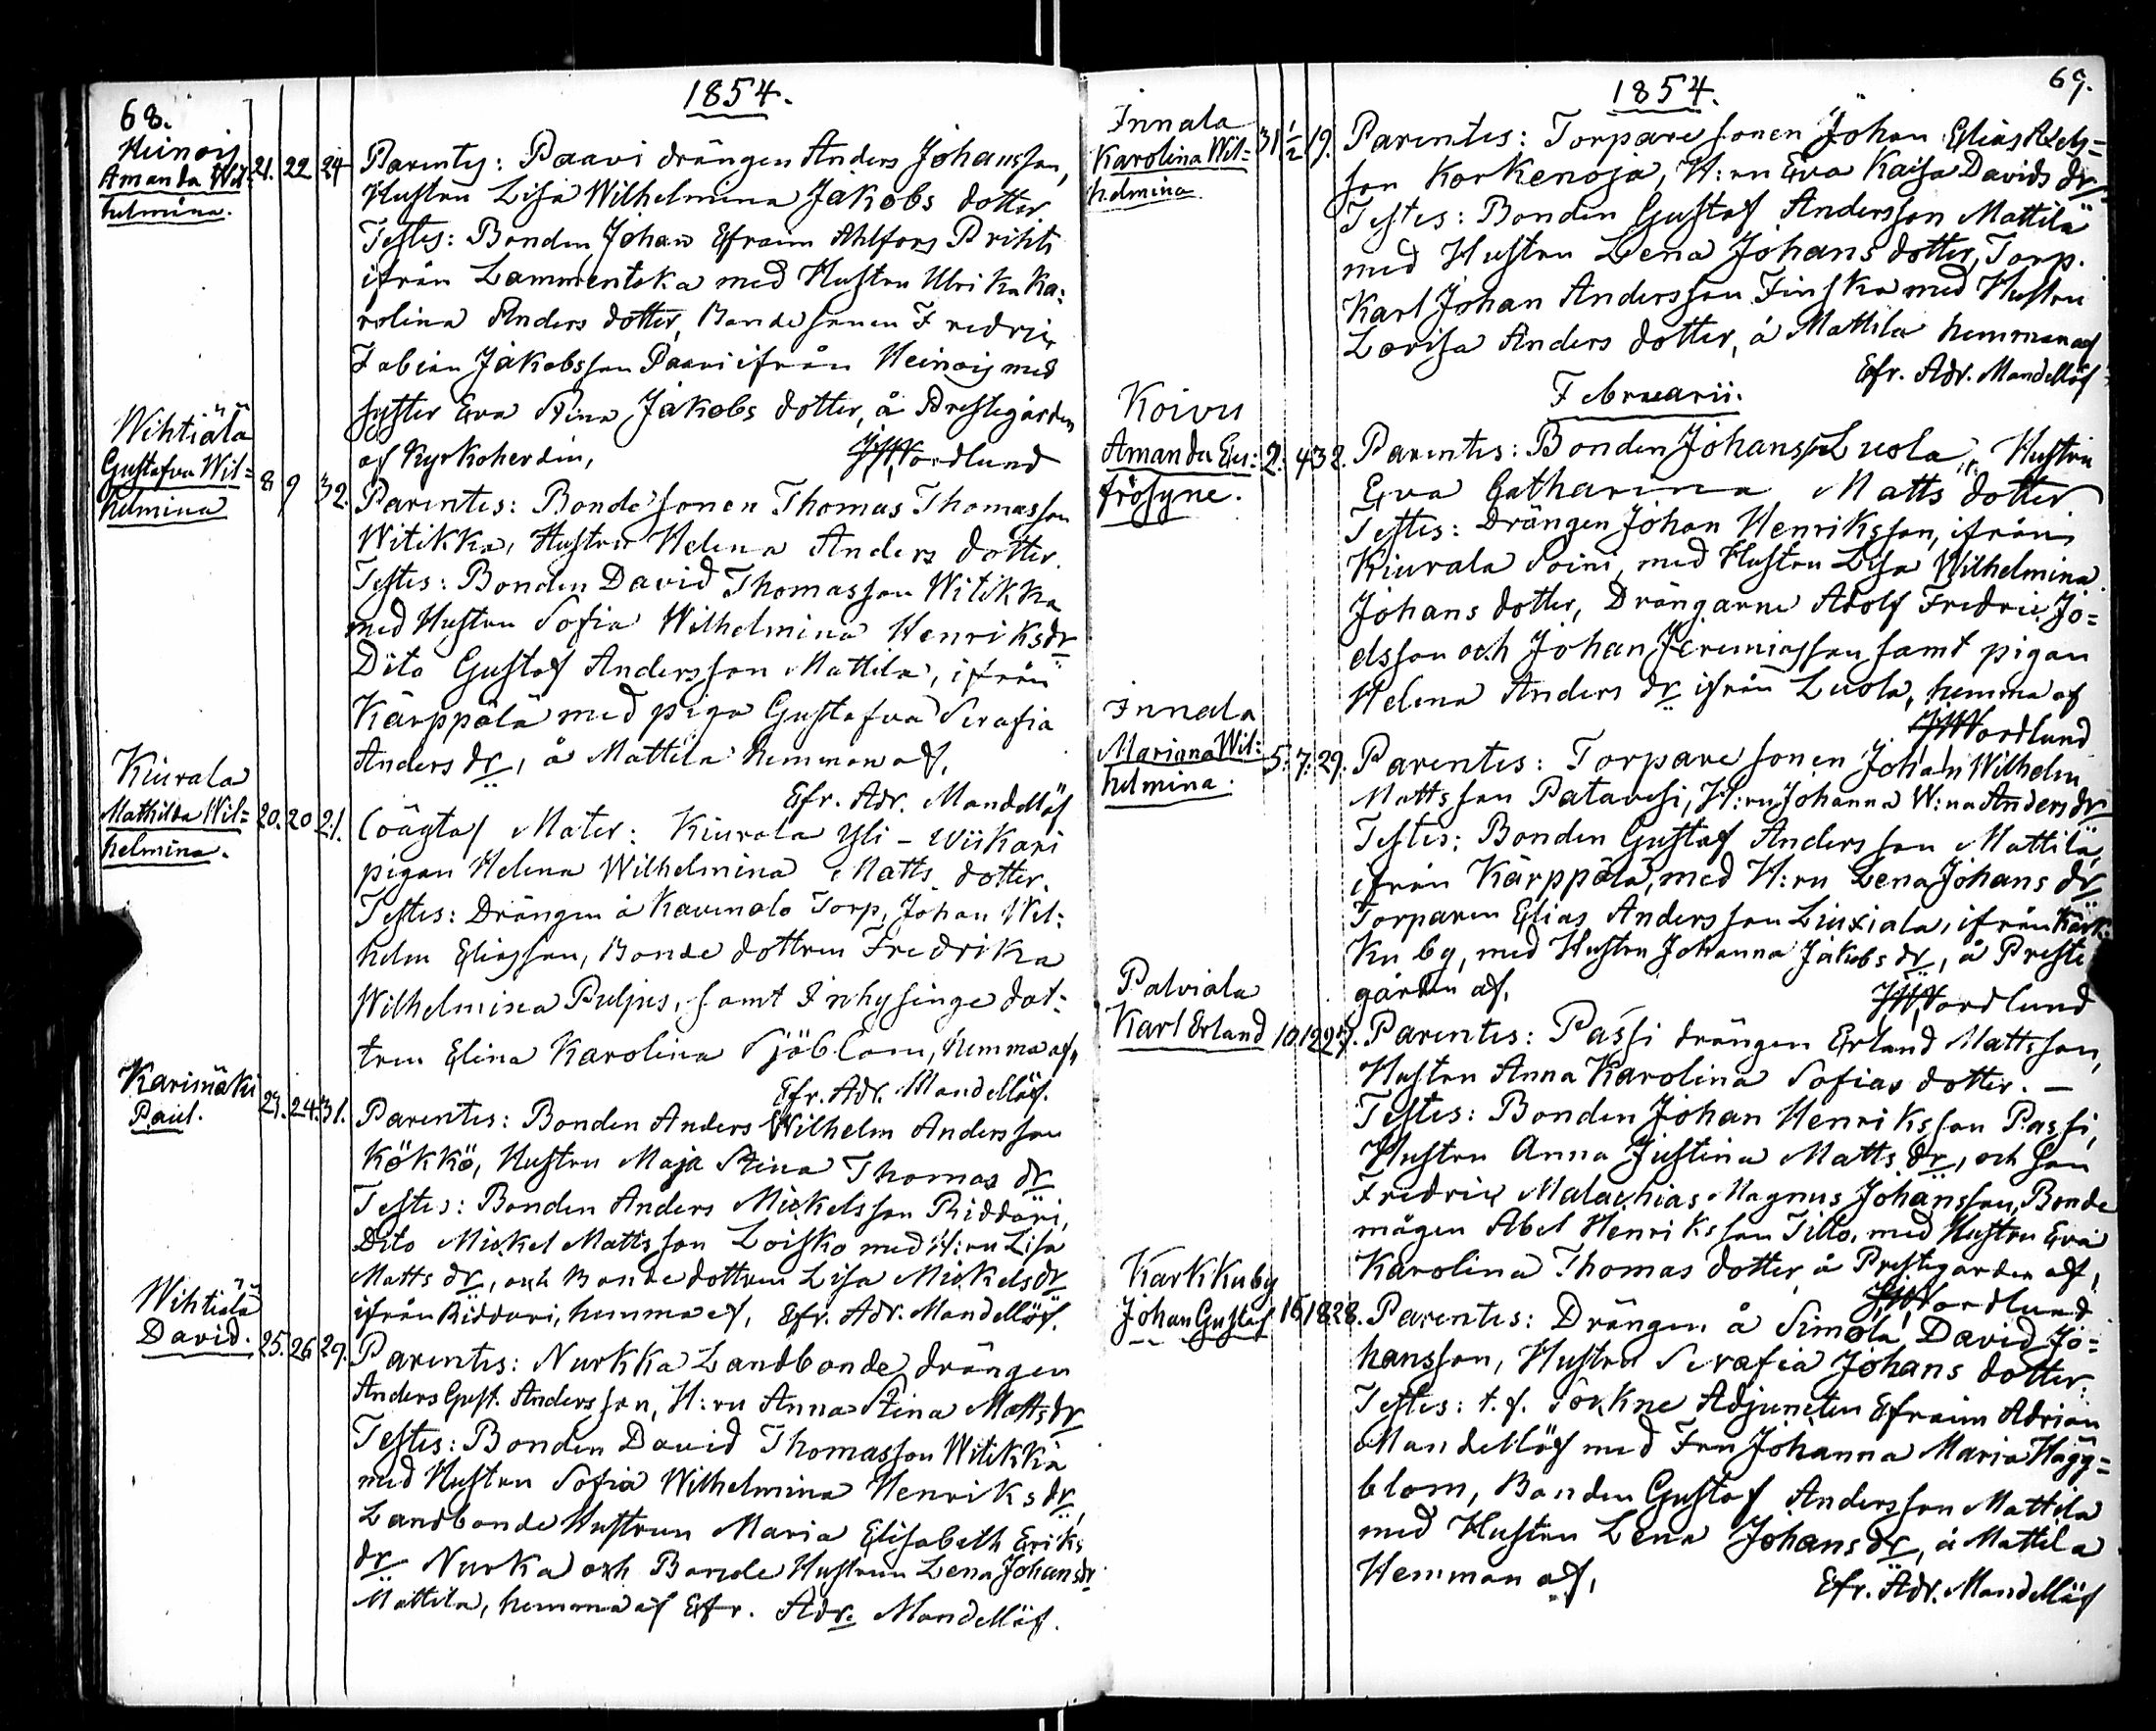 68.
1854.
Heinois
Amanda Wil=
helmina.
21. 22 24
Parentes: Paavi drängen Anders Johansson,
Hustru Lisa Wilhelmina Jakobs dotter
Testes: Bonden Johan Efraim Ahlfors Prihti
ifrån Lammentaka med Hustru Ulrika Ka=
rolina Anders dotter, Bondesonen Fredric
Fabian Jakobsson Paavi ifrån Heinois med
syster Eva Stina Jakobs dotter, å Prestegården
af Kyrkoherden, JWNordlund
Wihtiälä
Gustafva Wil=
helmina
8 9 32.
Parentes: Bondesonen Thomas Thomasson
Witikka, Hustru Helena Anders dotter.
Testes: Bonden David Thomasson Witikka
med Hustru Sofia Wilhelmina Henriksdr
Dito Gustaf Andersson Mattila, ifrån
Kärppälä med piga Gustafva Serafia
Anders dr, å Mattila hemman af,
Efr. Adr. Mandellöf
Kiurala
Mathilda Wil=
helmina.
20. 20 21.
(oägta) Mater: Kiurala Yli-Wiikari
pigan Helena Wilhelmina Matts dotter.
Testes: Drängen å Kavenalo Torp, Johan Wil=
helm Eliasson, Bonde dottren Fredrika
Wilhelmina Puljus, samt Inhysinge dot=
tren Elina Karolina Sjöblom, hemma af,
Efr. Adr. Mandellöf.
Karimäki
Paul.
23. 24. 31.
Parentes: Bonden Anders Wilhelm Andersson
Kökkö, Hustru Maja Stina Thomas dr
Testes: Bonden Anders Mickelsson Riddari,
Dito Mickel Mattsson Loisko med H:ru Lisa
Matts dr, och Bonde dottren Lisa Mickelsdr
ifrån Riddari, hemma af, Efr. Adr. Mandellöf.
Wihtiälä
David.
25. 26 29.
Parentes: Nurkka Landbonde drängen
Anders Gust. Andersson, H:ru Anna Stina Mattsdr
Testes: Bonden David Thomasson Witikka
med Hustru Sofia Wilhelmina Henriksdr,
Landbonde Hustrun Maria Elisabeth Eriks
dr Nurka och Bonde Hustrun Lena Johansdr
Mattila, hemma af Efr. Adr. Mandellöf.
69.
1854.
Innala
Karolina Wil=
helmina
31 1/2 19.
Parentes: Torpare sonen Johan Elias
son Korkenoja, H:ru Eva Kaisa Davids dr,
Testes: Bonden Gustaf Andersson Mattila
med Hustru Lena Johans dotter, Torp.
Karl Johan Andersson Finska med Hustru
Lovisa Anders dotter, å Mattila hemman af
Efr. Adr. Mandellöf
Februarii.
Koivu
Amanda Eu=
frosyne.
2. 4 32.
Parentes: Bonden Johansson Luola, Hustru
Eva Catharina Matts dotter
Testes: Drängen Johan Henriksson, ifrån
Kiurala Soini, med Hustru Lisa Wilhelmina
Johans dotter, Drängarne Adolf Fredric Jo=
elsson och Johan Jeremiasson samt pigan
Helena Anders dr ifrån Luola, hemma af
JWNordlund
Innala
Mariana Wil=
helmina.
5. 7. 29.
Parentes: Torpare sonen Johan Wilhelm
Mattsson Patavesi, H:ru Johanna W:na Andersdr
Testes: Bonden Gustaf Andersson Mattila,
ifrån Kärppälä, med H:ru Lena Johans dr,
Torparen Elias Andersson Liuxiala, ifrån Kark=
ku by, med Hustru Johanna Jakobs dr, å Preste
gården af, JWNordlund
Palviala
Karl Erland
10. 12 27.
Parentes: Passi drängen Erland Mattsson,
Hustru Anna Karolina Sofias dotter. –
Testes: Bonden Johan Henriksson Passi,
Hustru Anna Justina Matts dr, och son
Fredric Malachias Magnus Johansson, Bonde
mågen Abel Henriksson Tillo, med Hustru Eva
Karolina Thomas dotter å Prestegården af,
JWNordlund
Karkkuby
Johan Gustaf
16 18 28.
Parentes: Drängen å Simola David Jo=
hansson, Hustru Serafia Johans dotter.
Testes: t. f. Sockne Adjuncten Efraim Adrian
Mandellöf med Fru Johanna Maria Hägg=
blom, Bonden Gustaf Andersson Mattila
med Hustru Lena Johans dr, å Mattila
Hemman af,
Efr. Adr. Mandellöf